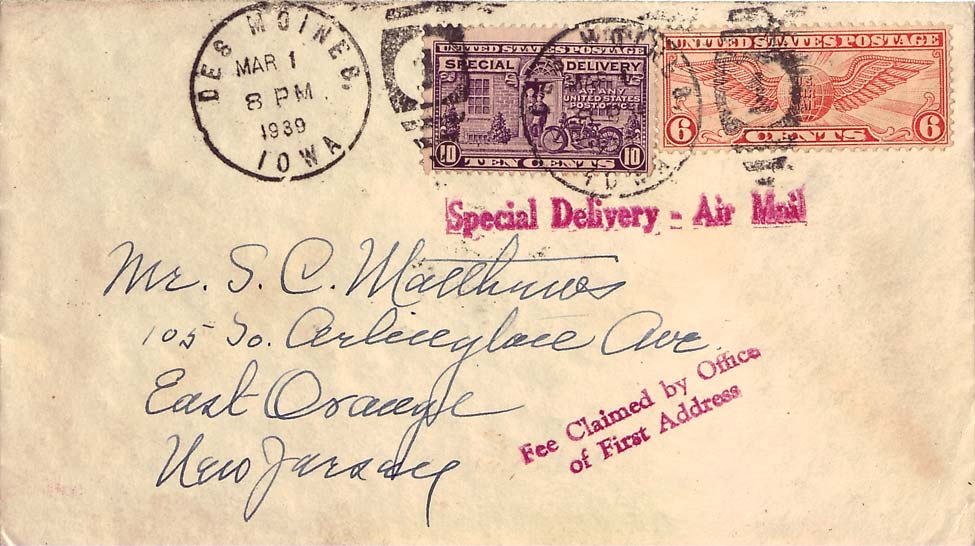 DES MOINES,
MAR 1
8 PM
1939
IOWA
UNITED STATES POSTAGE
SPECIAL DELIVERY
AT ANY
UNITED STATES
POST OFFICE
10 TEN CENTS 10
UNITED STATES POSTAGE
6 CENTS 6
IOWA
Special Delivery - Air Mail
Mr. S. C. Matthews
105 So. Arlington Ave.
East Orange
New Jersey
Fee Claimed by Office
of First Address